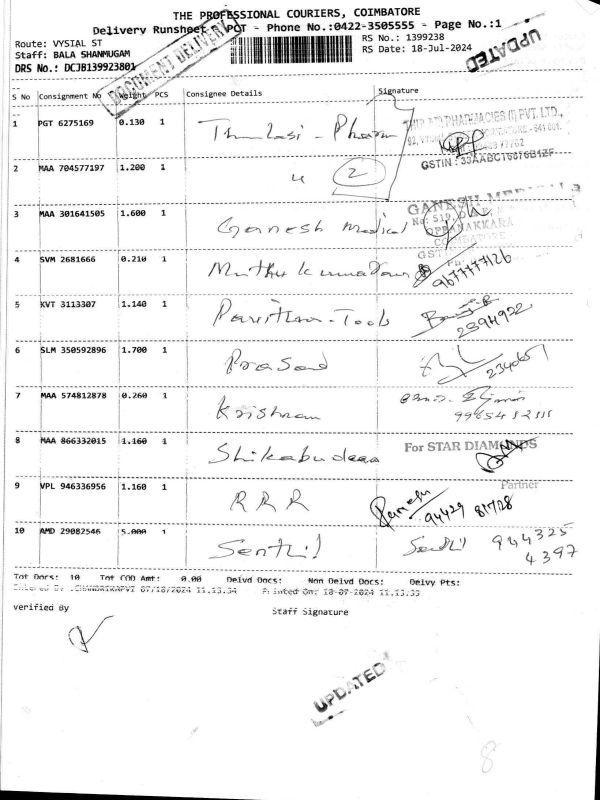 THE PROFESSIONAL COURIERS, COIMBATORE
Delivery Runsheet - PCT - Phone No.:0422-3505555 - Page No.:1
Route: VYSIAL ST
RS No.: 1399238
Staff: BALA SHANMUGAM
RS Date: 18-Jul-2024
DRS No.: DCJB139923801
DOCUMENT DELIVERY
UPDATED
S No Consignment No Weight PCS Consignee Details Signature
1 PGT 6275169 0.130 1 Thulasi - Pharm
PHARMACIES (I) PVT. LTD.,
GSTIN :
2 MAA 704577197 1.200 1 " 2
3 MAA 301641505 1.600 1 Ganesh Medical
GANESH MEDICAL
No: 519,
OPPANAKKARA
4 SVM 2681666 0.210 1 Muthu Kumaran 9677777126
5 KVT 3113307 1.140 1 Pavithra - Tools 2394922
6 SLM 350592896 1.700 1 Prasad 2340657
7 MAA 574812878 0.260 1 Krishnam
8 MAA 866332015 1.160 1 Shikabudeen For STAR DIAMONDS
Partner
9 VPL 946336956 1.160 1 R R R Ramesh 94429 81728
10 AMD 29082546 5.000 1 Senthil Senthil 944325
4397
Tot Docs: 10 Tot COD Amt: 0.00 Delvd Docs: Non Delvd Docs: Delvy Pts:
Entered By :CHANDRIKAPVT 07/18/2024 11.13.34 Printed On: 18-07-2024 11.13.35
verified By Staff Signature
UPDATED
8